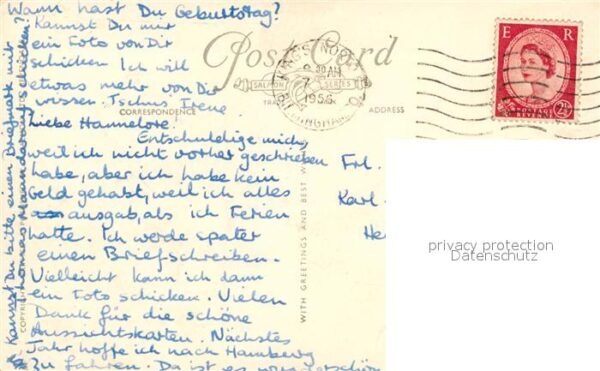 Wann hast Du Geburtstag?
Kannst Du mir
ein Foto von Dir
schicken Ich will
etwas mehr von Dir
wissen. Tschus Irene
Post Card
SALMON SERIES
CORRESPONDENCE
ADDRESS
KING'S NORTON
AM
1956
BIRMINGHAM
E R
POSTAGE
REVENUE
2½
Liebe Hannelore!
Entschuldige mich,
weil ich nicht vorher geschrieben
habe, aber ich habe kein
Geld gehabt, weil ich alles
ausgab, als ich Ferien
hatte. Ich werde spater
einen Brief schreiben.
Vielleicht kann ich dann
ein Foto schicken. Vielen
Dank für die schöne
Aussichtskarten. Nächstes
Jahr hoffe ich nach Hamburg
zu fahren. Da ist es
Kannst Du bitte einen Briefmark mit
Thomas Mann darauf schicken?
WITH GREETINGS AND BEST
Frl.
Karl
He
privacy protection
Datenschutz